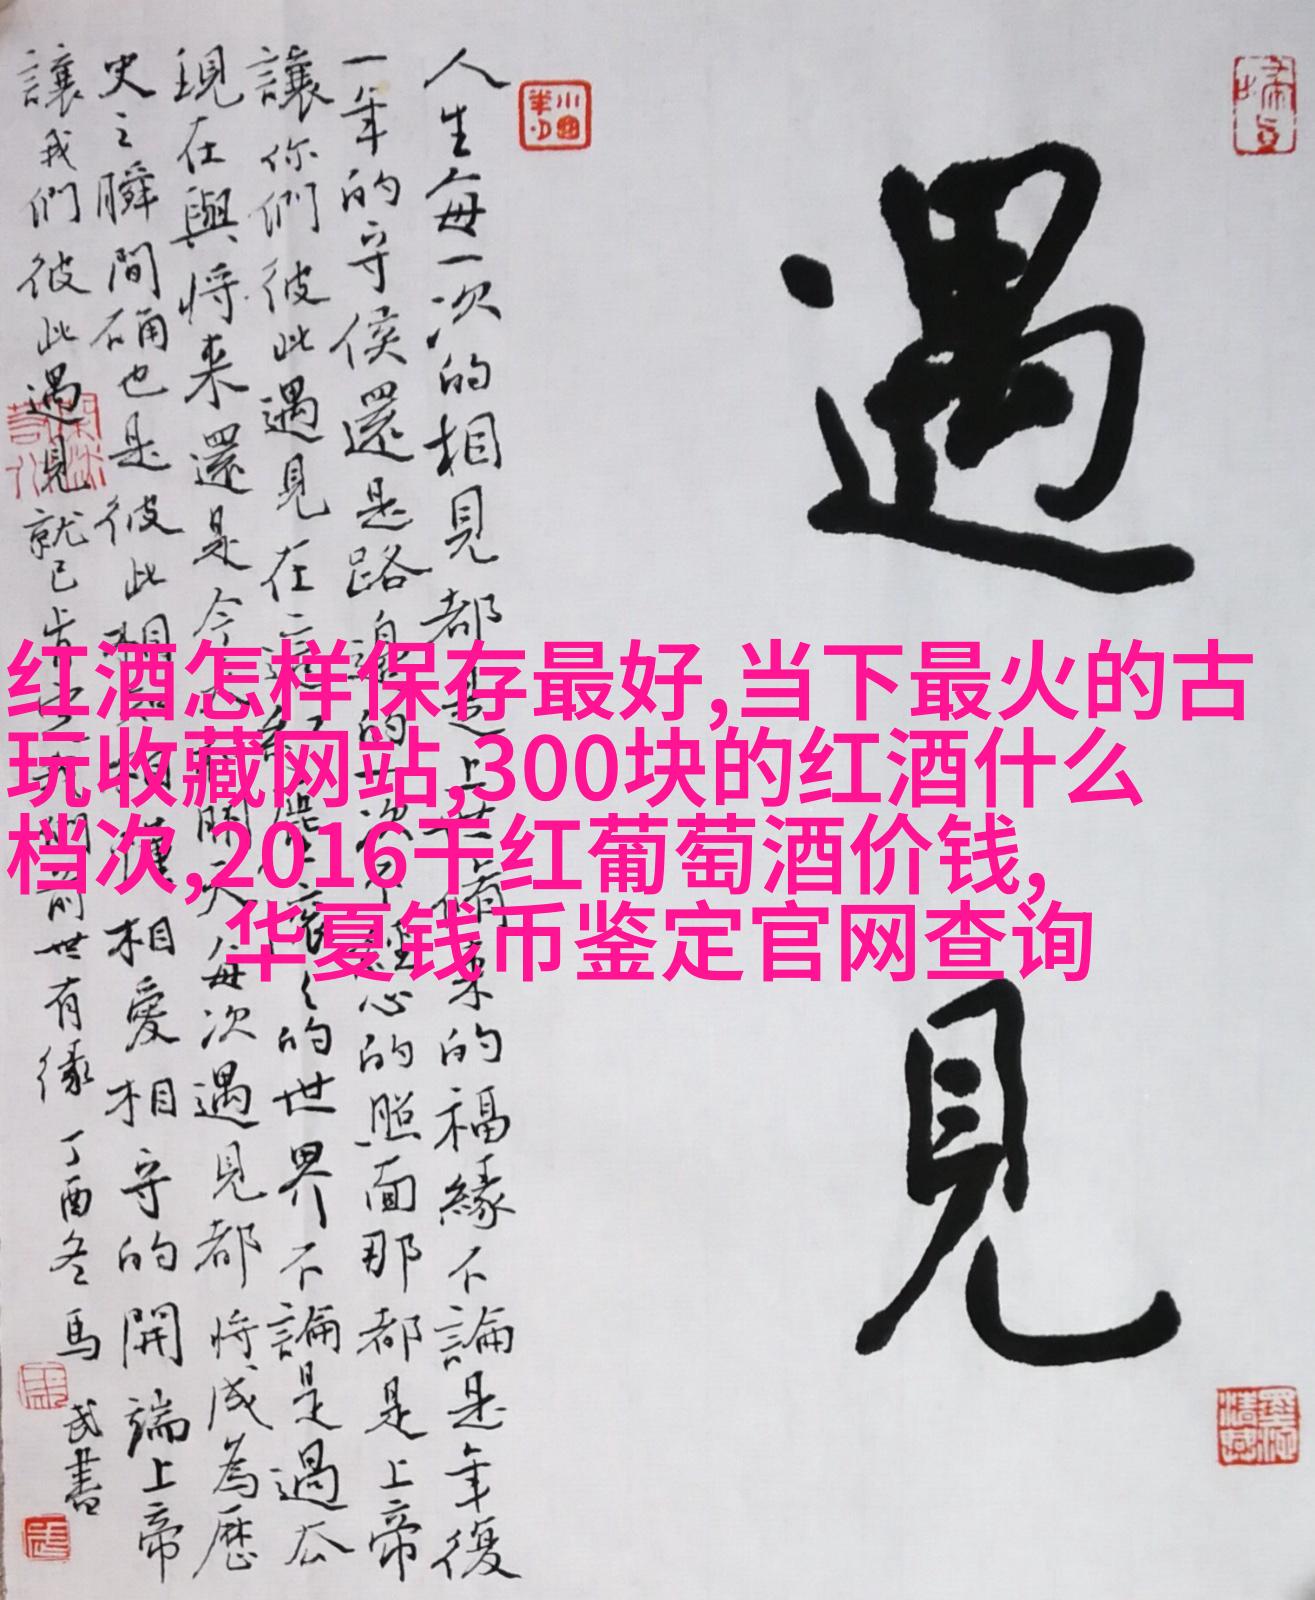 遇見
人生每一次的相見都是上世脩來的福緣不論是年復
一年的守侯還是路邊的一次不經心的照面那都是上帝
讓你們彼此遇見在這紅塵滾々的世界不論是過去
現在與將来還是今天明天每次遇見都將成為歷
史之瞬間確也是彼此相知相懂相愛相守的開端上帝
讓我們彼此遇見就已肯定我們前世有緣 丁酉冬馬武書
红酒怎样保存最好,当下最火的古
玩收藏网站,300块的红酒什么
档次,2016干红葡萄酒价钱,
华夏钱币鉴定官网查询